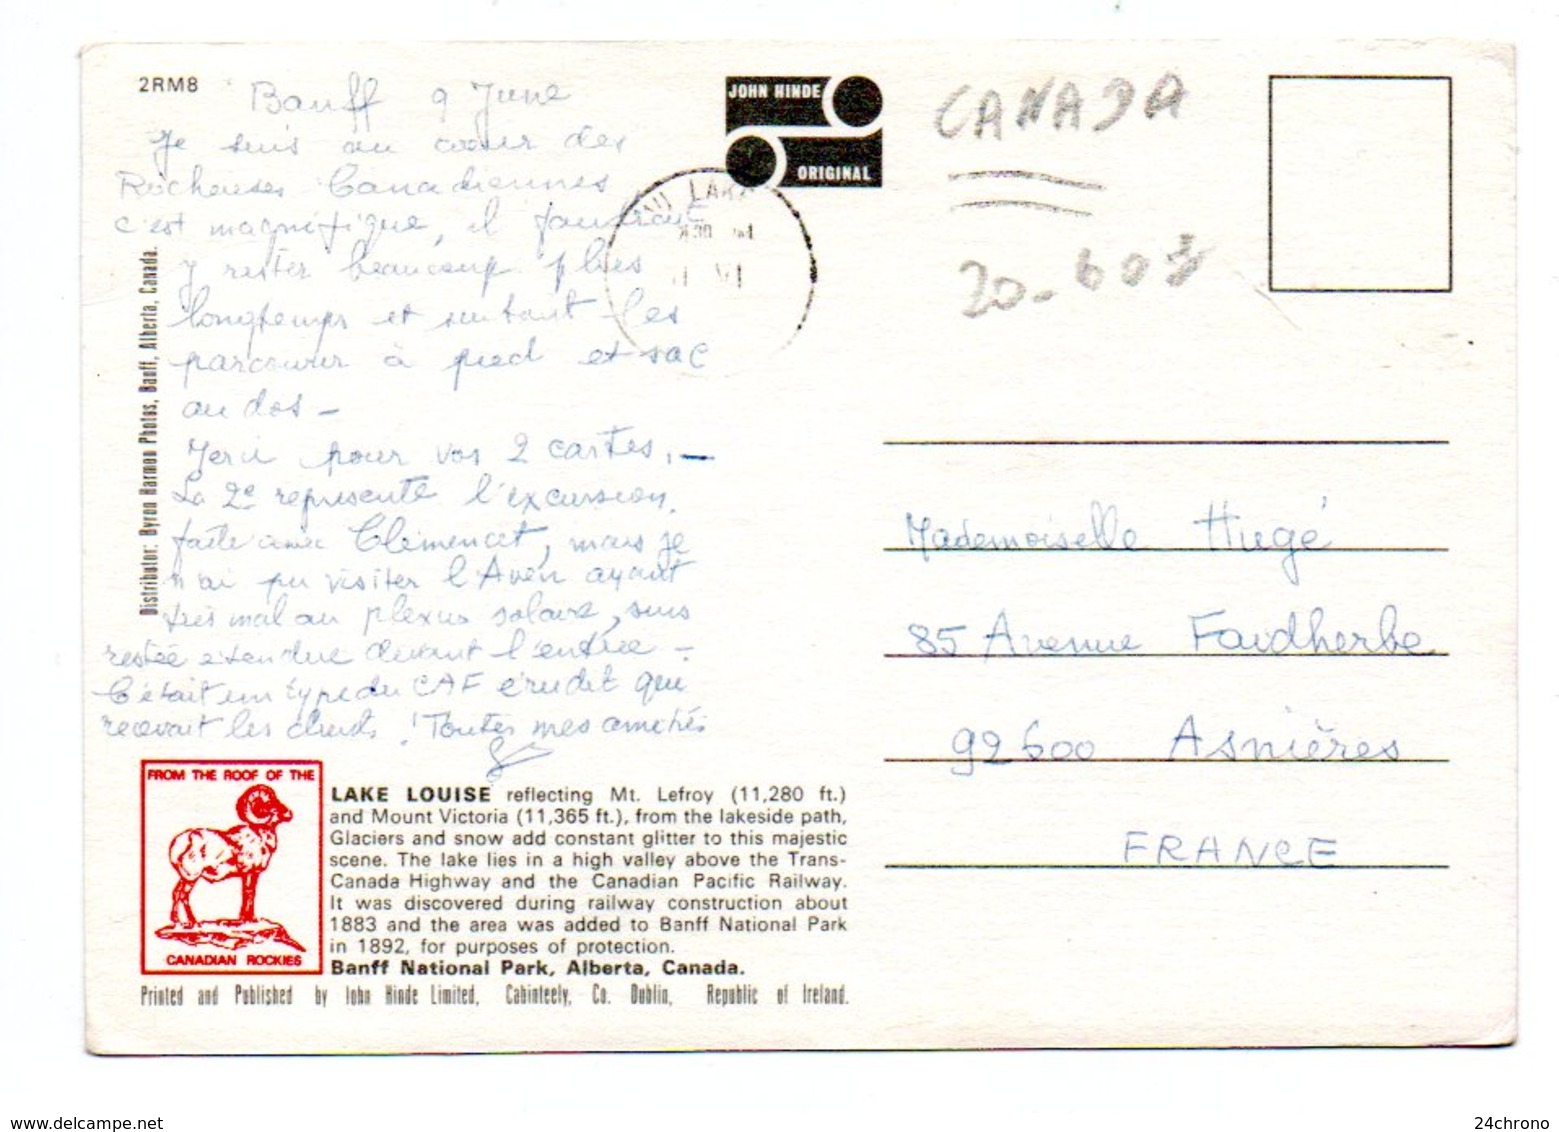 2RM8
Banff 9 June
Je suis au coeur des
Rocheuses Canadiennes
c'est magnifique, il faudrait
y rester beaucoup plus
longtemps et surtout les
parcourir à pied et sac
au dos -
Merci pour vos 2 cartes. -
La 2e représente l'excursion
faite avec Clémencet, mais je
n'ai pu visiter l'Aven ayant
très mal au plexus solaire, suis
restée étendue devant l'entrée -
C'était un type du CAF érudit qui
recevait les clients! Toutes mes amitiés
Distributor: Byron Harmon Photos, Banff, Alberta, Canada.
JOHN HINDE
ORIGINAL
CANADA
20-603
Mademoiselle Hugé
85 Avenue Faidherbe
92600 Asnières
FRANCE
FROM THE ROOF OF THE
CANADIAN ROCKIES
LAKE LOUISE reflecting Mt. Lefroy (11,280 ft.)
and Mount Victoria (11,365 ft.), from the lakeside path,
Glaciers and snow add constant glitter to this majestic
scene. The lake lies in a high valley above the Trans-
Canada Highway and the Canadian Pacific Railway.
It was discovered during railway construction about
1883 and the area was added to Banff National Park
in 1892, for purposes of protection.
Banff National Park, Alberta, Canada.
Printed and Published by John Hinde Limited, Cabinteely, Co. Dublin, Republic of Ireland.
www.delcampe.net
24chrono